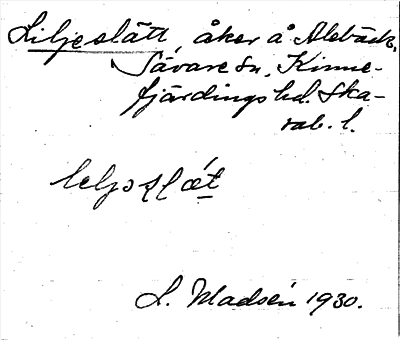 Liljeslätt, åker å Alebäck,
Sävare sn, Kinne-
fjärdings hd. Ska-
rab. l.
L. Madsén 1930.